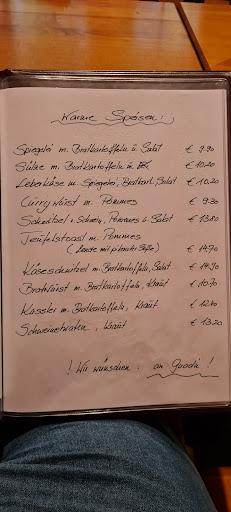 Warme Speisen:
Spiegelei m. Bratkartoffeln u. Salat € 9.90
Sülze m. Bratkartoffeln € 10.20
Leberkäse m. Spiegelei, Bratkart., Salat € 10,20
Currywurst m. Pommes € 9.30
Schnitzel v. Schwein, Pommes u. Salat € 13.80
Teufelstoast m. Pommes
(Lende mit pikanter Soße) € 14,70
Käseschnitzel m. Bratkartoffeln, Salat € 14,90
Bratwurst m. Bratkartoffeln, Kraut € 10.70
Kassler m. Bratkartoffeln, Kraut € 12.10
Schweinebraten, Kraut € 13.20
! Wir wünschen an Guadn !